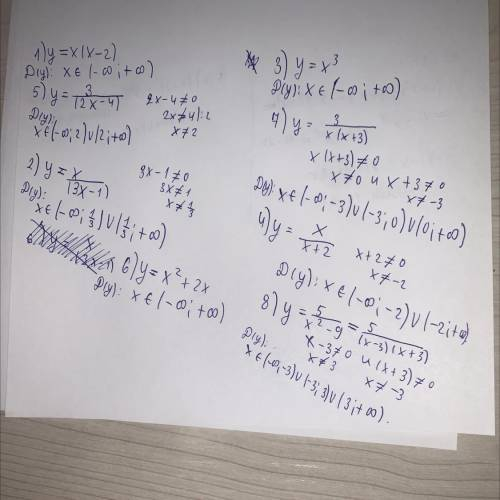 1) y = x(x-2)
D(y): x ∈ (-∞; +∞)
5) y = 3/(2x-4) 2x-4≠0
2x≠4 |:2
D(y): x≠2
x∈(-∞; 2)∪(2; +∞)
2) y = x/(3x-1) 3x-1≠0
3x≠1
D(y): x≠1/3
x∈(-∞; 1/3)∪(1/3; +∞)
6) y = x²+2x
D(y): x∈(-∞; +∞)
3) y = x³
D(y): x∈(-∞; +∞)
7) y = 3/x(x+3)
x(x+3)≠0
x≠0 и x+3≠0
x≠-3
D(y): x∈(-∞; -3)∪(-3; 0)∪(0; +∞)
4) y = x/x+2 x+2≠0
x≠-2
D(y): x∈(-∞; -2)∪(-2; +∞)
8) y = 5/x²-9 = 5/(x-3)(x+3)
x-3≠0 и (x+3)≠0
D(y): x≠3 x≠-3
x∈(-∞; -3)∪(-3; 3)∪(3; +∞).